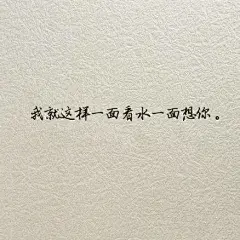 我就这样一面看水一面想你。